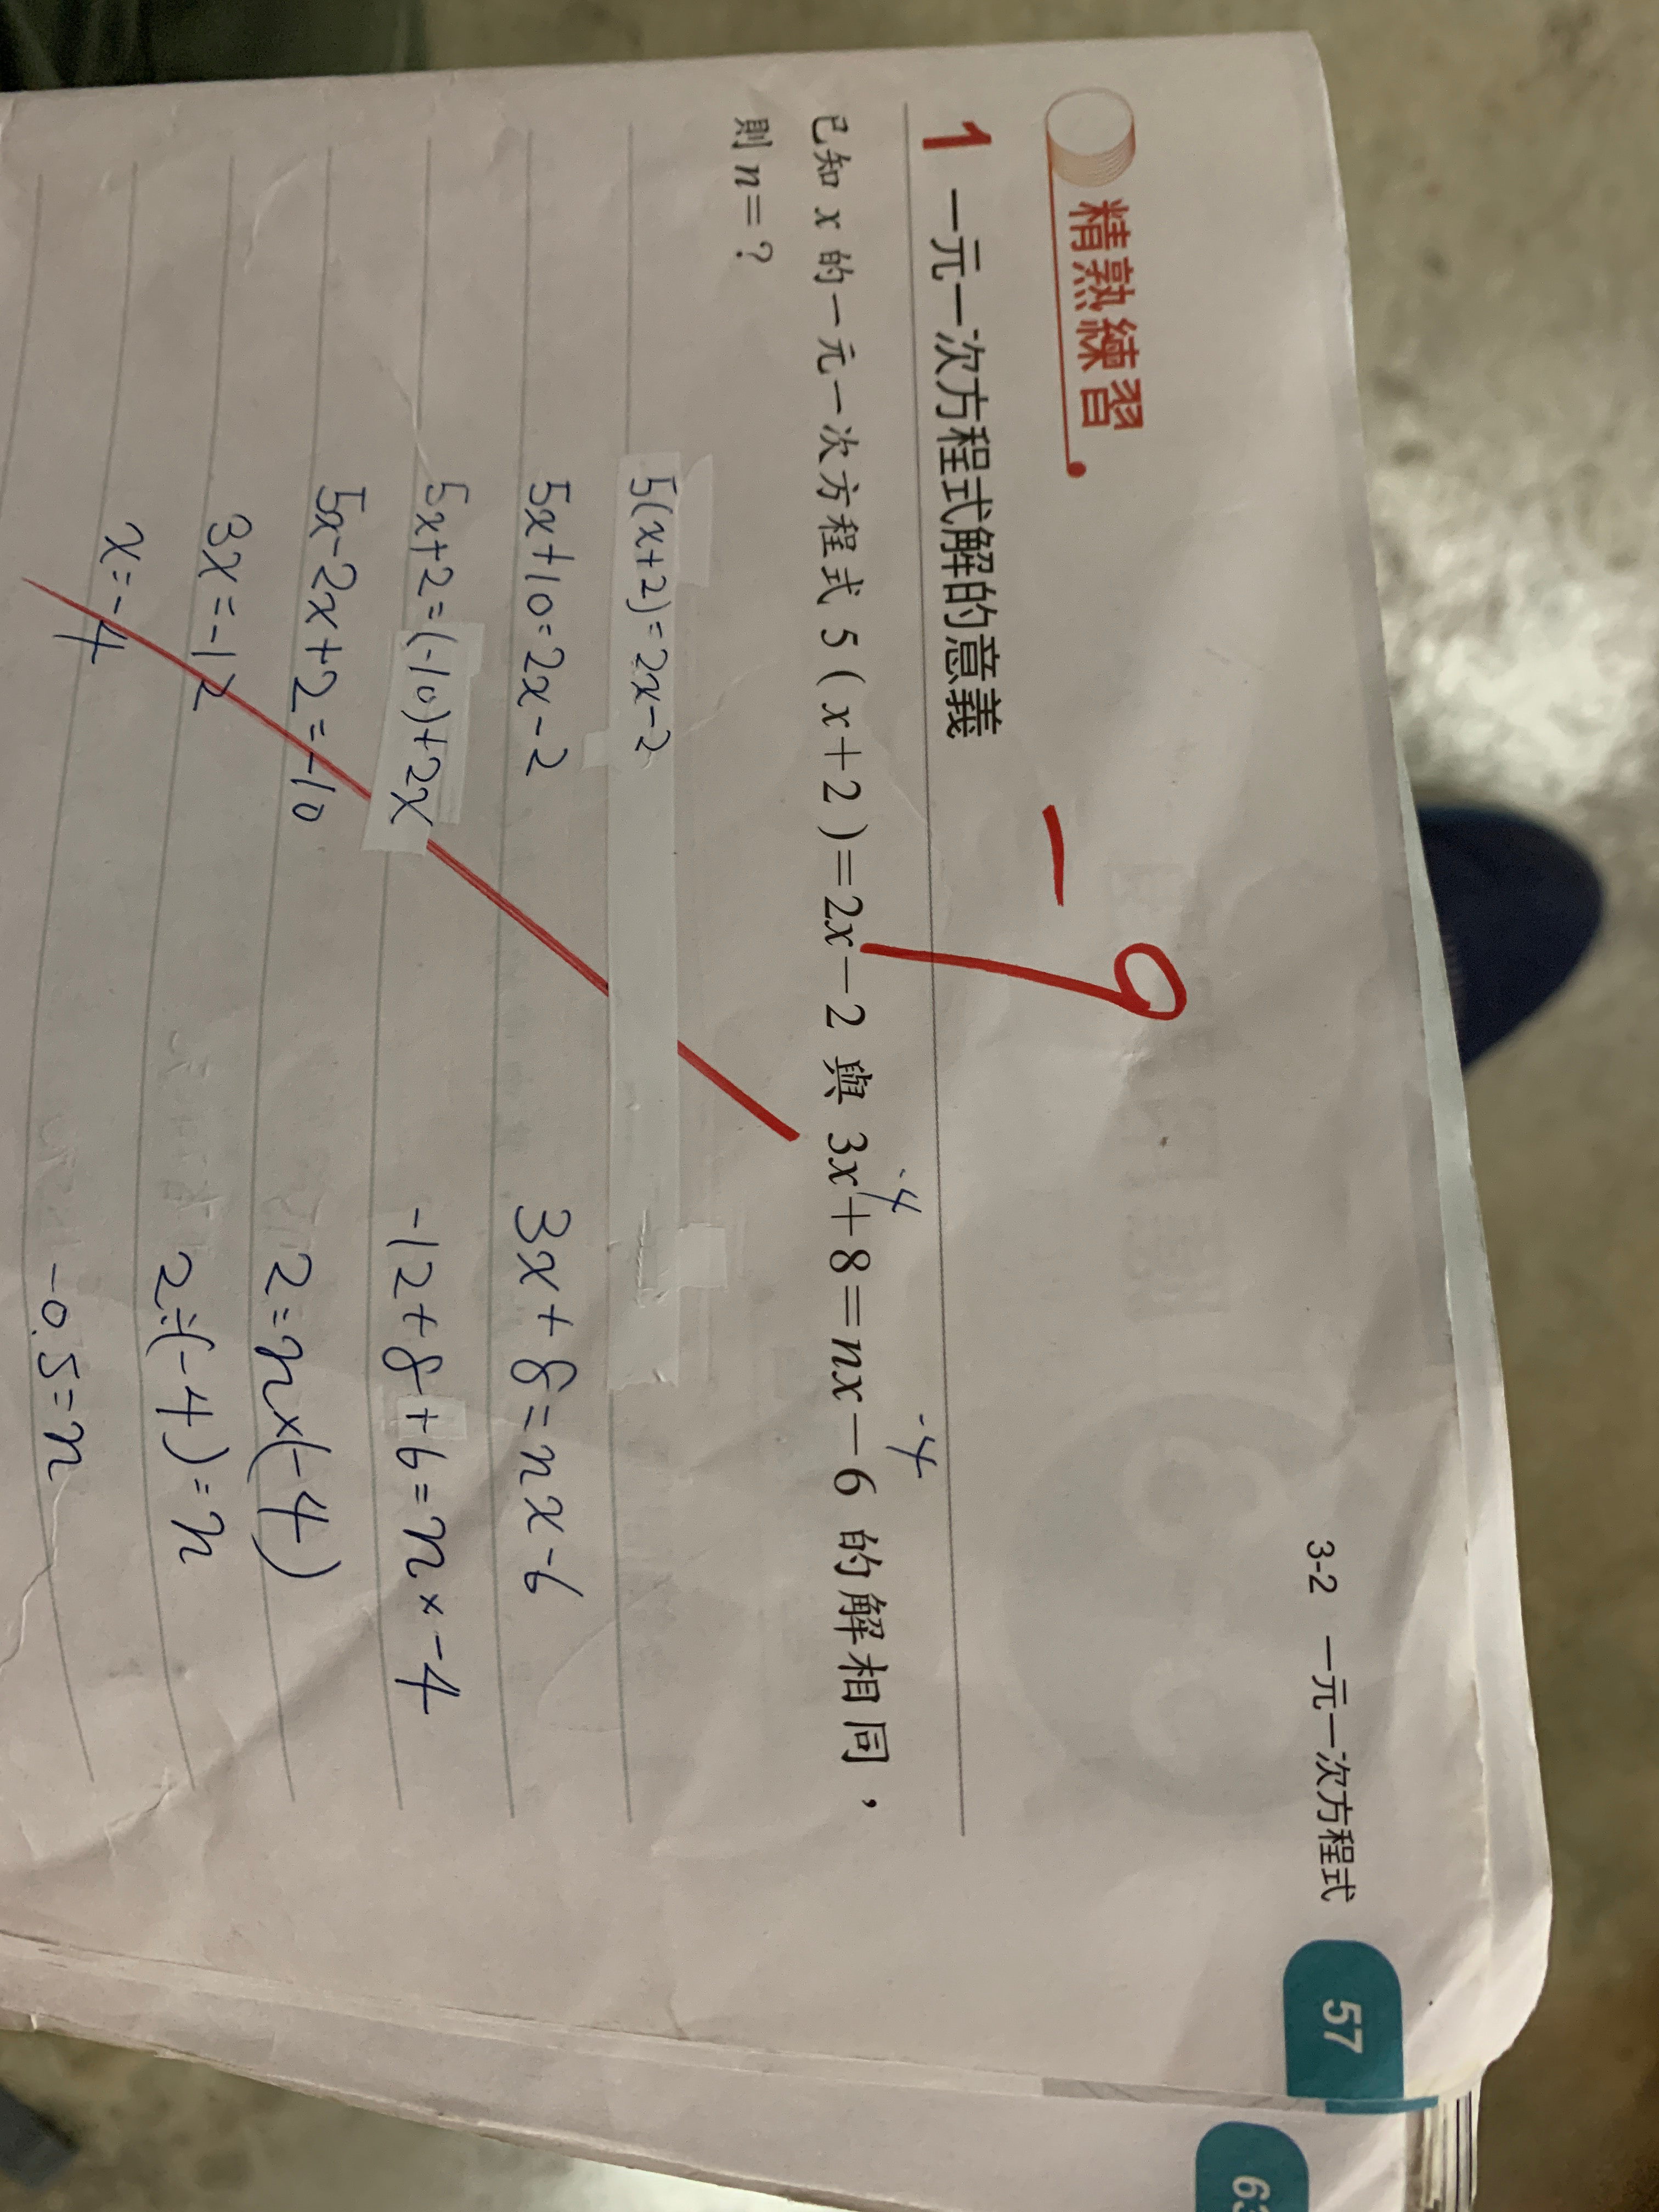 3-2 一元一次方程式 57
精熟練習
-9
1 一元一次方程式解的意義
-4 -4
已知 x 的一元一次方程式 5(x+2)=2x-2 與 3x+8=nx-6 的解相同，
則 n=？
5(x+2)=2x-2
5x+10=2x-2
3x+8=nx-6
5x+2=(-10)+2x
-12+8+6=n×-4
5x-2x+2=-10
2=n×(-4)
3x=-12
2÷(-4)=n
x=-4
-0.5=n